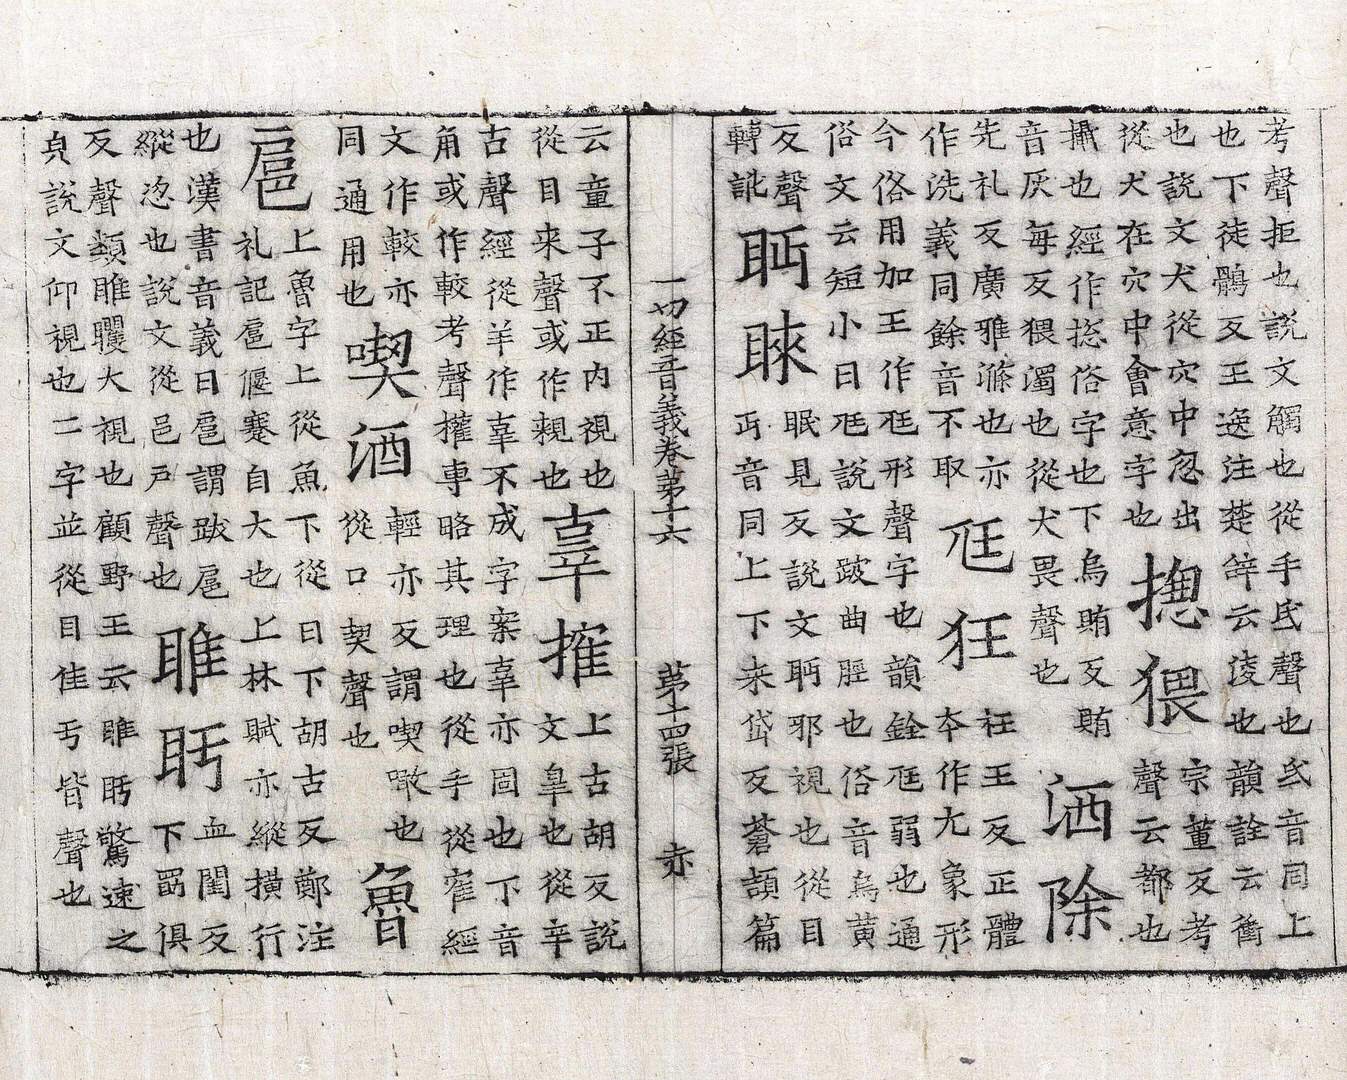 考聲拒也說文觸也從手氐聲也氐音同上
也下徒鶻反王逸注楚辝云也韻詮云衝
也說文犬從穴中忽出
從犬在穴中會意字也
摠猥
宗董反考
聲云都也
攝也經作捴俗字也下烏賄反賄
音灰每反猥濁也從犬畏聲也
洒除
先礼反廣雅滌也亦
作洗義同餘音不取
尫狂
枉王反正體
本作尢象形
今俗用加王作尫形聲字也韻銓尫弱也通
俗文云短小曰尫說文跛曲脛也俗音烏黄
反聲
轉訛
眄睞
眠見反說文眄邪視也從目
丏音同上下来岱反蒼頡篇
一切經音義卷第十六
第十四張
赤
云童子不正內視也
從目来聲或作親也
辜搉
上古胡反說
文辠也從辛
古聲經從羊作辜不成字案辜亦固也下音
角或作較考聲搉專略其理也從手從隺經
文作較亦
同通用也
喫酒
輕亦反謂喫噉也
從口契聲也
魯
扈
上魯字上從魚下從日下胡古反鄭注
礼記扈蹇自大也上林賦亦縱橫行
也漢書音義曰扈謂跋扈
縱恣也說文從邑戶聲也
睢盱
血閨反
下罽俱
反聲類睢大視也顧野王云睢盱驚遽之
皃說文仰視也二字並從目隹亏皆聲也